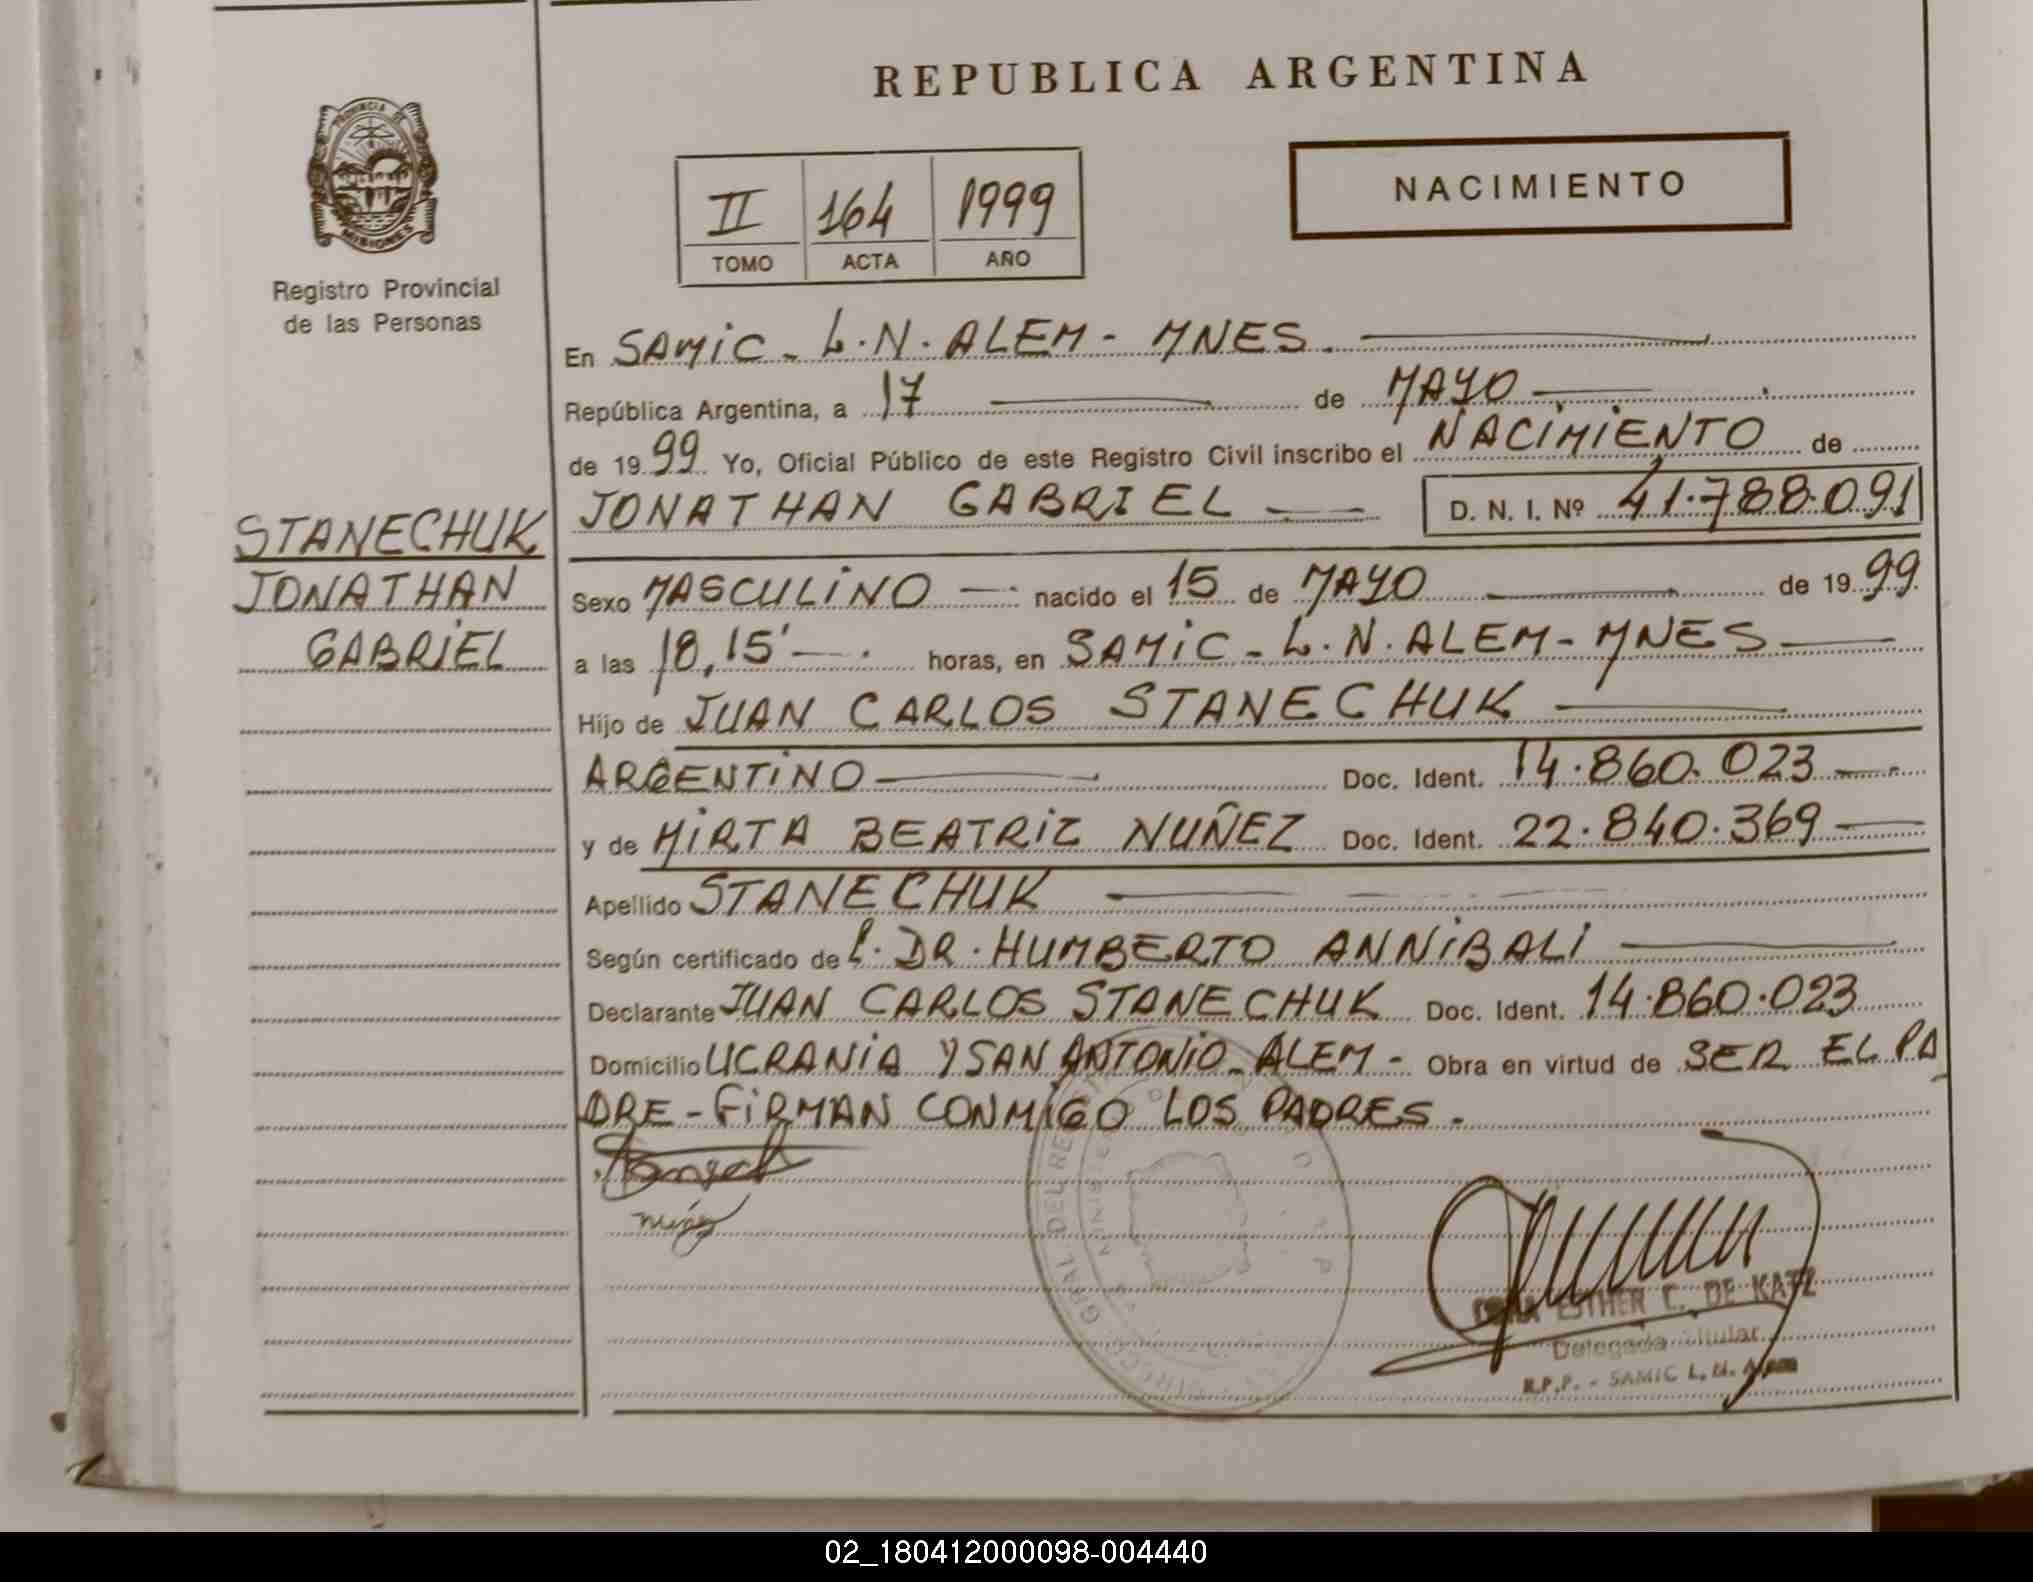 REPUBLICA ARGENTINA
PROVINCIA DE
MISIONES
Registro Provincial
de las Personas
II 164 1999
TOMO ACTA AÑO
NACIMIENTO
STANECHUK
JONATHAN
GABRIEL
En SAMIC - L.N. ALEM - MNES.
República Argentina, a 17 de MAYO
de 1999 Yo, Oficial Público de este Registro Civil inscribo el NACIMIENTO de
JONATHAN GABRIEL D. N. I. Nº 41.788.091
Sexo MASCULINO nacido el 15 de MAYO de 1999
a las 18,15' horas, en SAMIC - L.N. ALEM - MNES
Hijo de JUAN CARLOS STANECHUK
ARGENTINO Doc. Ident. 14.860.023
y de MIRTA BEATRIZ NUÑEZ Doc. Ident. 22.840.369
Apellido STANECHUK
Según certificado de DR. HUMBERTO ANNIBALI
Declarante JUAN CARLOS STANECHUK Doc. Ident. 14.860.023
Domicilio UCRANIA Y SAN ANTONIO - ALEM - Obra en virtud de SER EL PA
DRE - FIRMAN CONMIGO LOS PADRES.
ESTHER C. DE KATZ
Delegada Titular
R.P.P. - SAMIC L. N. Alem
02_180412000098-004440